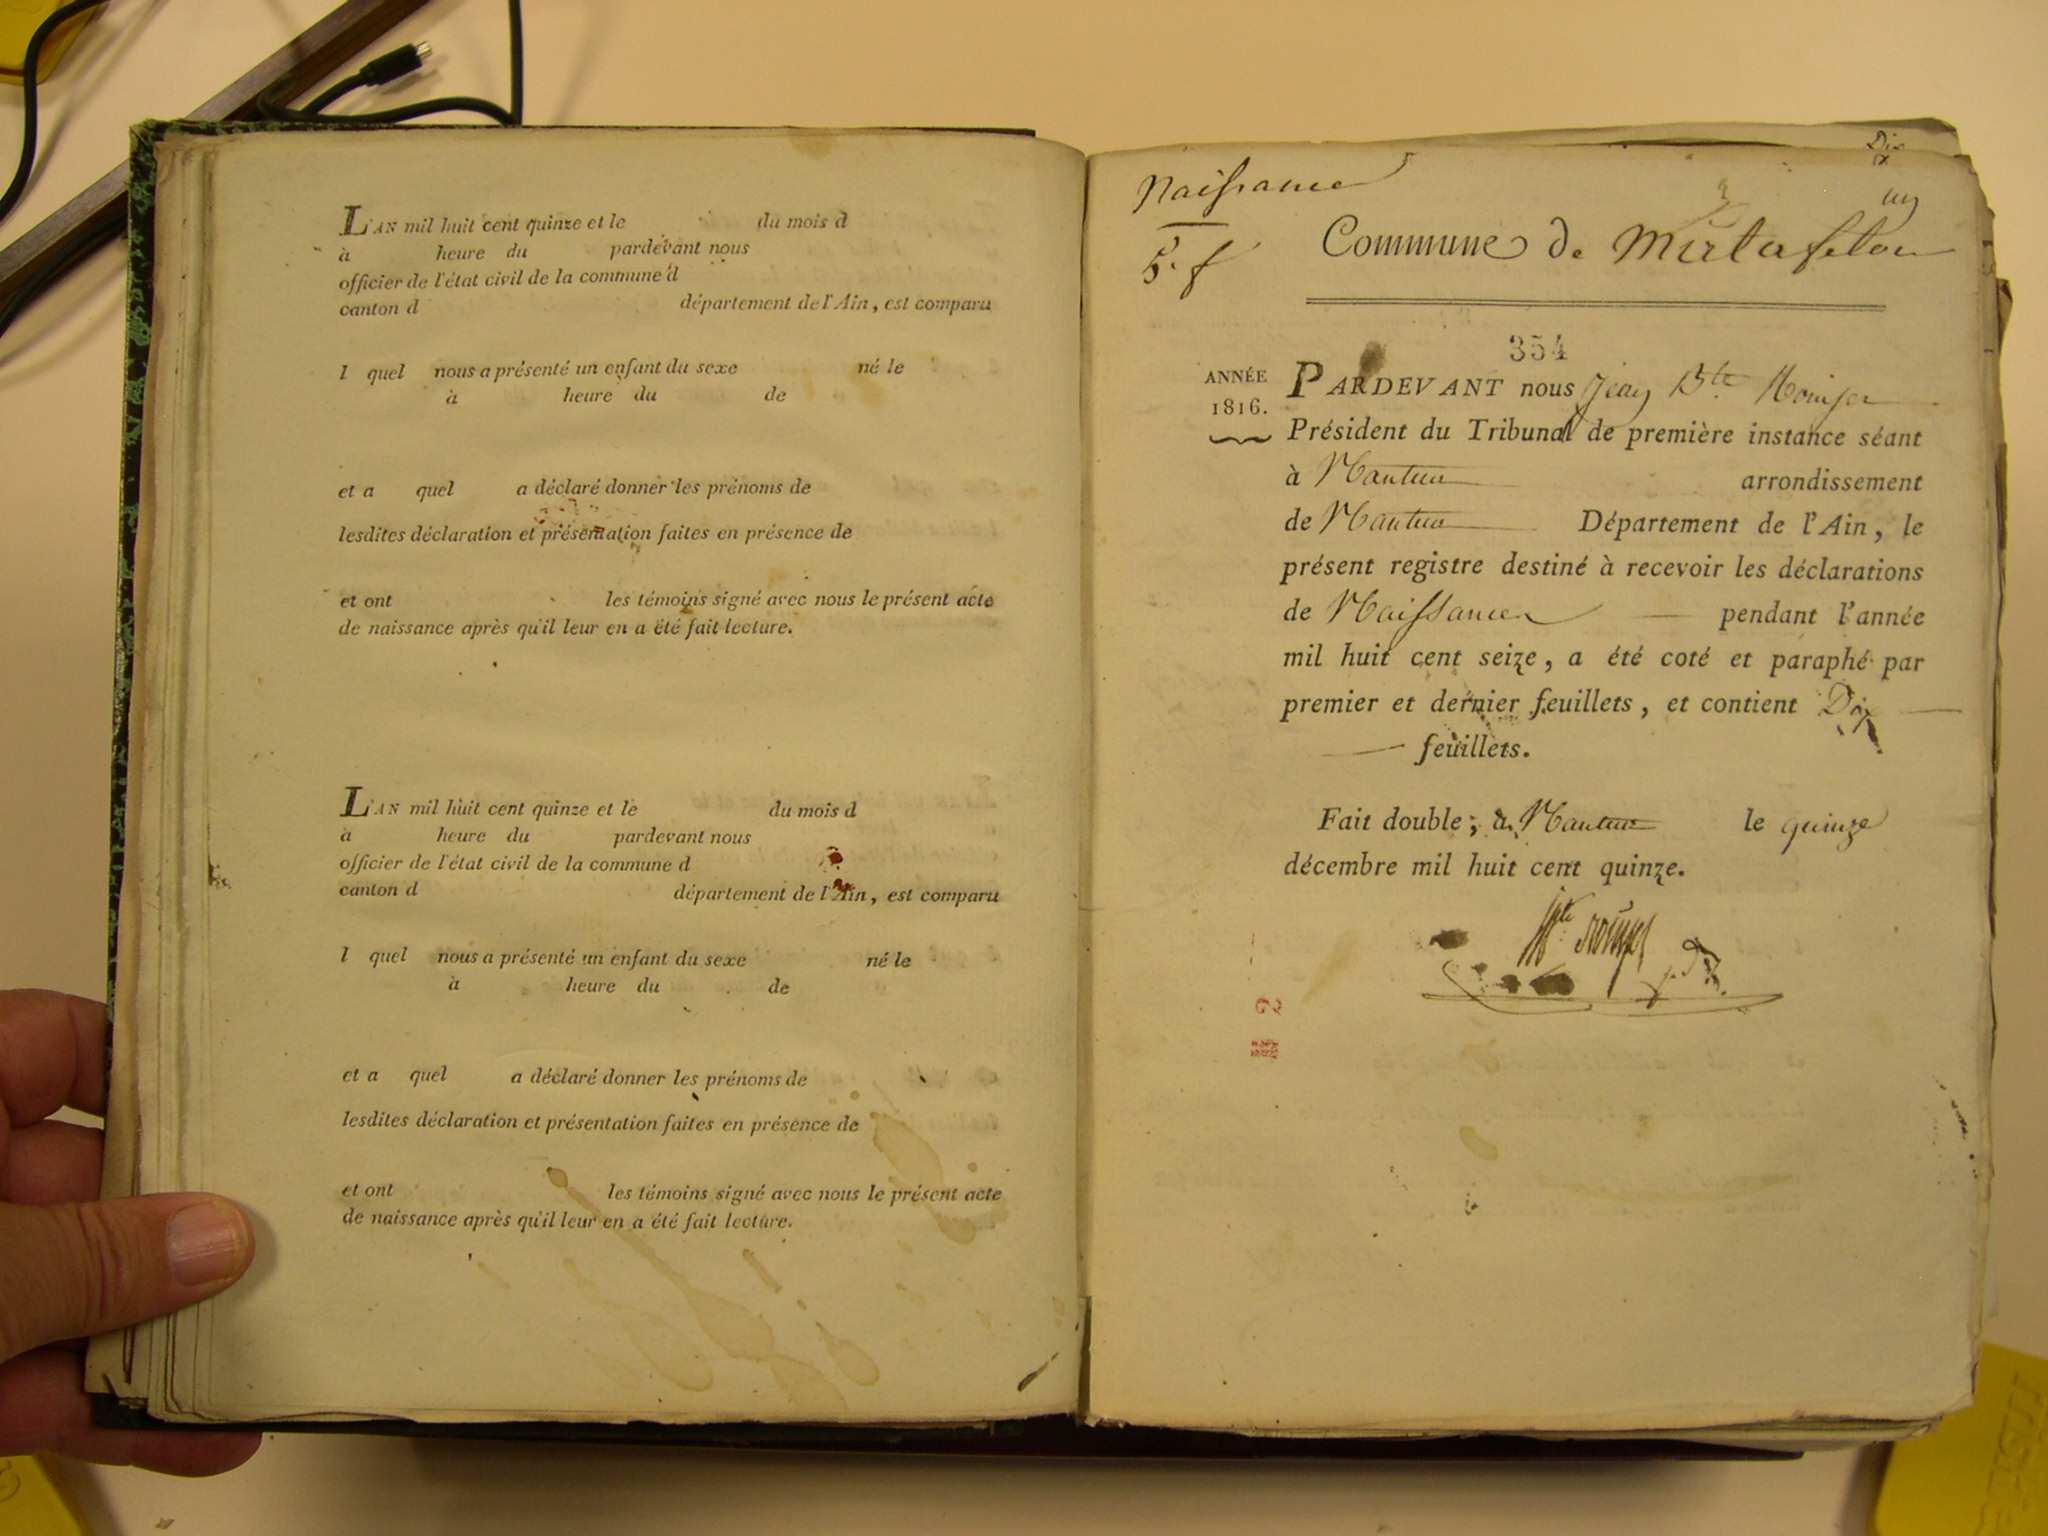 L'AN mil huit cent quinze et le du mois d
à heure du pardevant nous
officier de l'état civil de la commune d
canton d département de l'Ain, est comparu
l quel nous a présenté un enfant du sexe né le
à heure du de
et a quel a déclaré donner les prénoms de
lesdites déclaration et présentation faites en présence de
et ont les témoins signé avec nous le présent acte
de naissance après qu'il leur en a été fait lecture.
L'AN mil huit cent quinze et le du mois d
à heure du pardevant nous
officier de l'état civil de la commune d
canton d département de l'Ain, est comparu
l quel nous a présenté un enfant du sexe né le
à heure du de
et a quel a déclaré donner les prénoms de
lesdites déclaration et présentation faites en présence de
et ont les témoins signé avec nous le présent acte
de naissance après qu'il leur en a été fait lecture.
Dix
un
Naissance
5. f
Commune de Matafelon
354
ANNÉE
1816.
PARDEVANT nous Jean Bte
Président du Tribunal de première instance séant
à Nantua arrondissement
de Nantua Département de l'Ain, le
présent registre destiné à recevoir les déclarations
de Naissances pendant l'année
mil huit cent seize, a été coté et paraphé par
premier et dernier feuillets, et contient Dix
feuillets.
Fait double, à Nantua le quinze
décembre mil huit cent quinze.